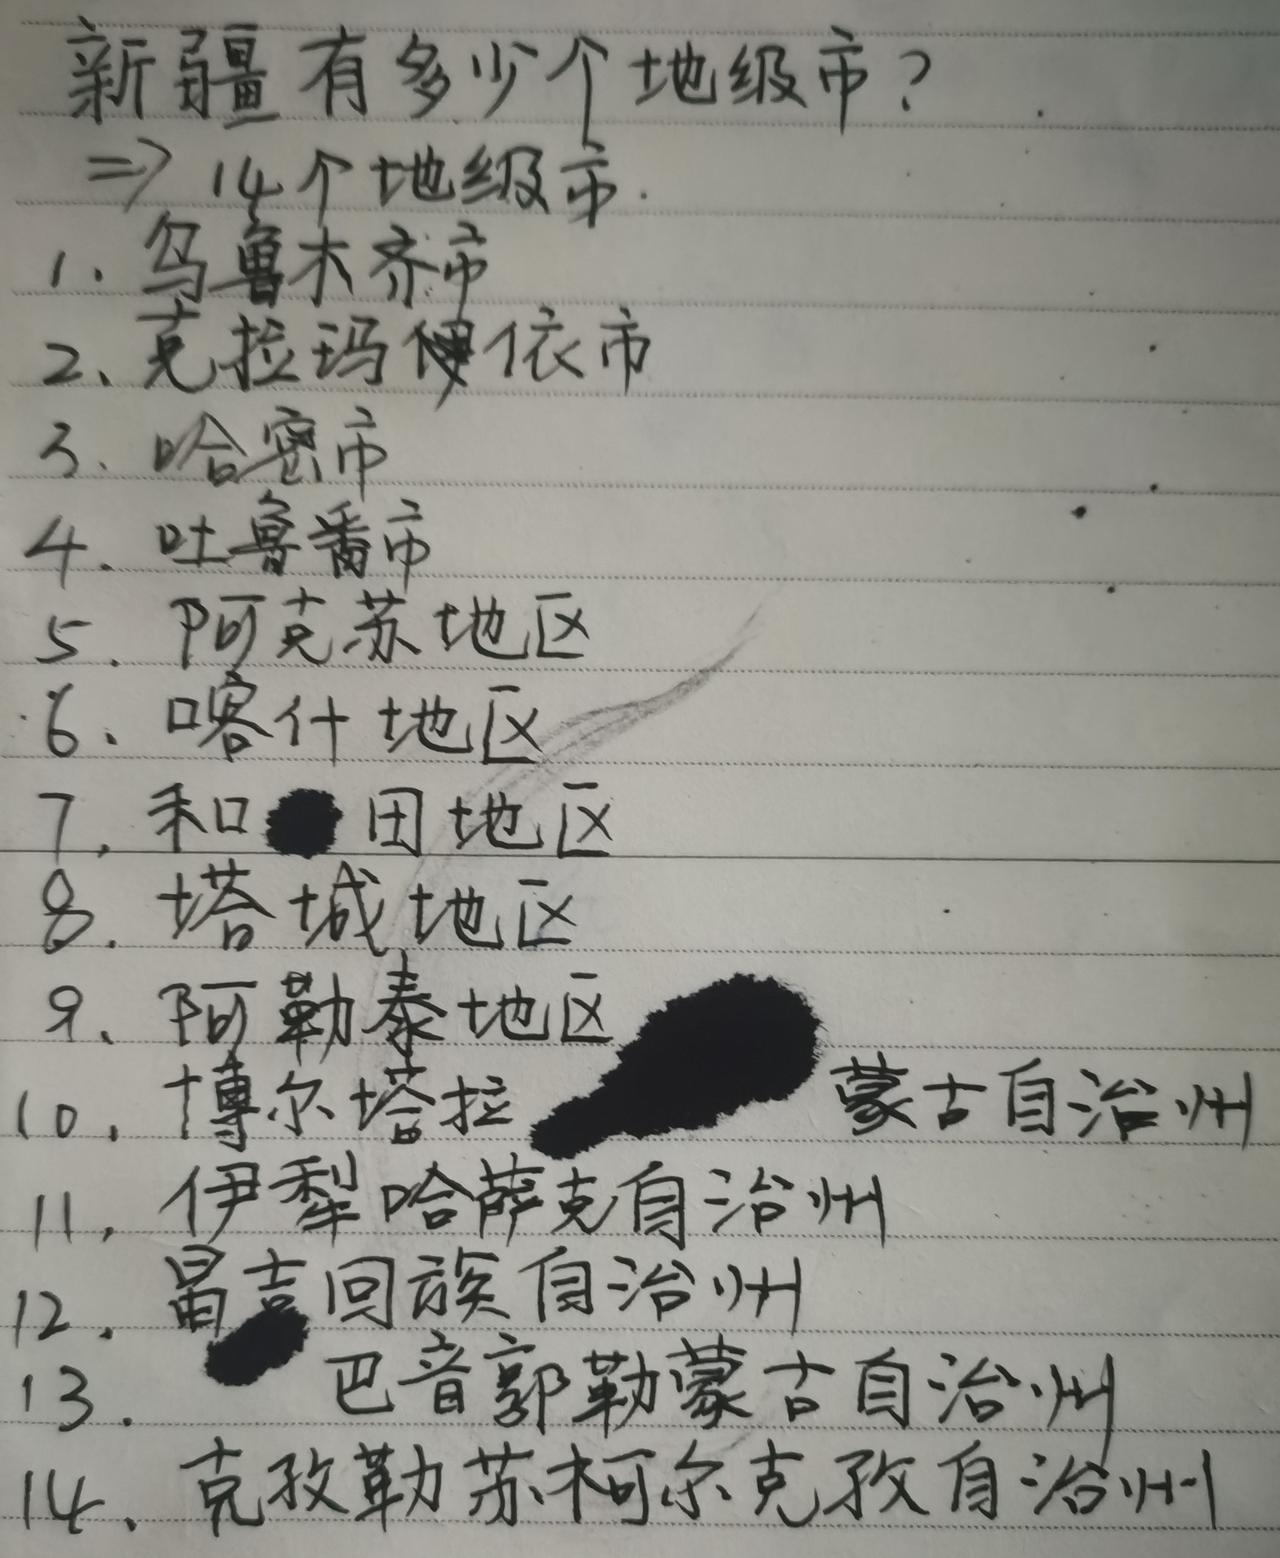 新疆有多少个地级市?
=> 14个地级市.
1. 乌鲁木齐市
2. 克拉玛依市
3. 哈密市
4. 吐鲁番市
5. 阿克苏地区
6. 喀什地区
7. 和田地区
8. 塔城地区
9. 阿勒泰地区
10. 博尔塔拉蒙古自治州
11. 伊犁哈萨克自治州
12. 昌吉回族自治州
13. 巴音郭勒蒙古自治州
14. 克孜勒苏柯尔克孜自治州